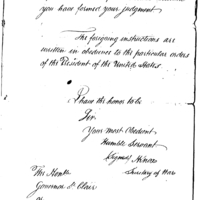 you have formed your judgment
The foregoing instructions are
written in obedience to the particular orders
of the President of the United States
I have the honor to be
Sir
Your most Obedient
Humble Servant
Secretary of War
Governor St Clair